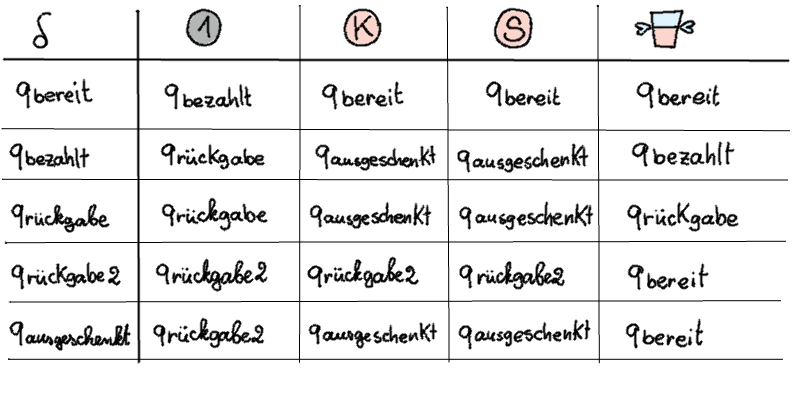 δ 1 K S
qbereit qbezahlt qbereit qbereit qbereit
qbezahlt qrückgabe qausgeschenkt qausgeschenkt qbezahlt
qrückgabe qrückgabe qausgeschenkt qausgeschenkt qrückgabe
qrückgabe2 qrückgabe2 qrückgabe2 qrückgabe2 qbereit
qausgeschenkt qrückgabe2 qausgeschenkt qausgeschenkt qbereit